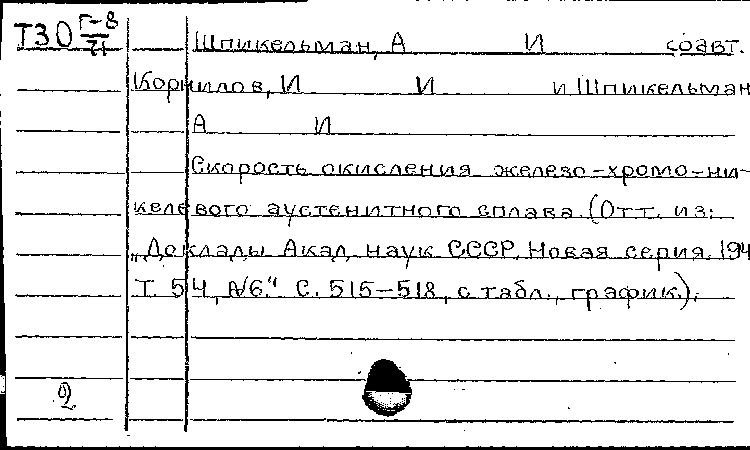 Т30 Г-8/71 Шпикельман, А И соавт.
Корнилов, И И и Шпикельман
А И
Скорость окисления железо-хромо-ни-
келевого аустенитного сплава. (Отт. из:
„Доклады Акад. наук СССР. Новая серия. 194
Т. 54, №6." С. 515-518, с табл., график.).
2